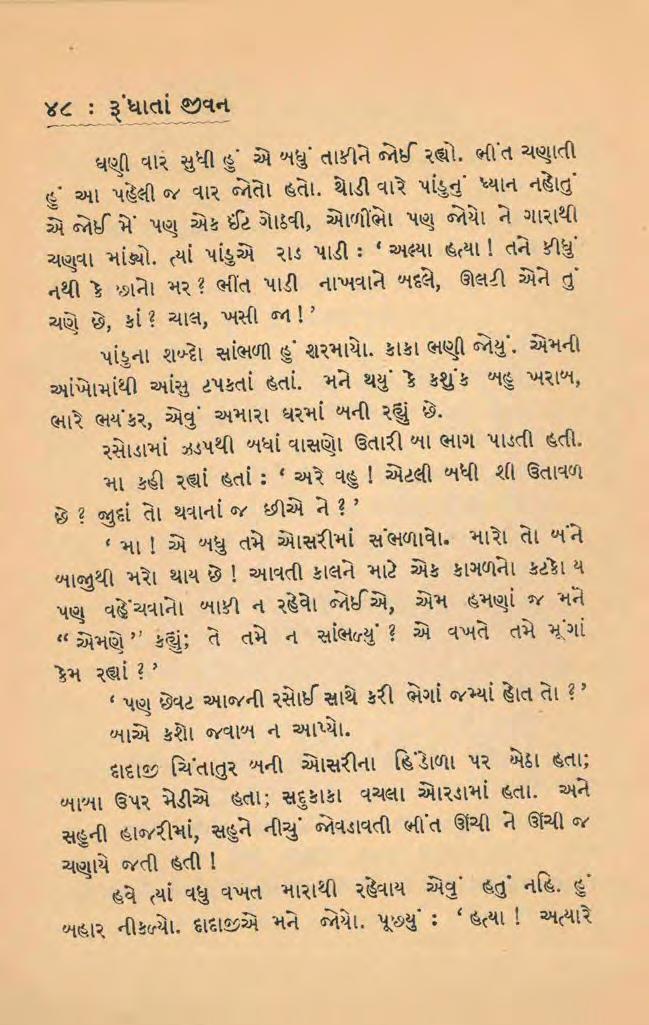 ૪૮ : રૂંધાતાં જીવન
ઘણી વાર સુધી હું એ બધું તાકીને જોઈ રહ્યો. ભીંત ચણાતી
હું આ પહેલી જ વાર જોતો હતો. થોડી વારે પાંડુનું ધ્યાન નહોતું
એ જોઈ મેં પણ એક ઈંટ ગોઠવી, ઓળંભો પણ જોયો ને ગારાથી
ચણવા માંડ્યો. ત્યાં પાંડુએ રાડ પાડી : ‘ અલ્યા હત્યા ! તને કીધું
નથી કે છાનો મર ? ભીંત પાડી નાખવાને બદલે, ઊલટી એને તું
ચણે છે, કાં ? ચાલ, ખસી જા ! ’
પાંડુના શબ્દો સાંભળી હું શરમાયો. કાકા ભણી જોયું. એમની
આંખોમાંથી આંસુ ટપકતાં હતાં. મને થયું કે કશુંક બહુ ખરાબ,
ભારે ભયંકર, એવું અમારા ઘરમાં બની રહ્યું છે.
રસોડામાં ઝડપથી બધાં વાસણો ઉતારી બા ભાગ પાડતી હતી.
મા કહી રહ્યાં હતાં : ‘ અરે વહુ ! એટલી બધી શી ઉતાવળ
છે ? જુદાં તો થવાનાં જ છીએ ને ? ’
‘ મા ! એ બધુ તમે ઓસરીમાં સંભળાવો. મારો તો બંને
બાજુથી મરો થાય છે ! આવતી કાલને માટે એક કાગળનો કટકો ય
પણ વહેંચવાનો બાકી ન રહેવો જોઈએ, એમ હમણાં જ મને
“ એમણે ” કહ્યું; તે તમે ન સાંભળ્યું ? એ વખતે તમે મૂંગાં
કેમ રહ્યાં ? ’
‘ પણ છેવટ આજની રસોઈ સાથે કરી ભેગાં જમ્યાં હોત તો ? ’
બાએ કશો જવાબ ન આપ્યો.
દાદાજી ચિંતાતુર બની ઓસરીના હિંડોળા પર બેઠા હતા;
બાબા ઉપર મેડીએ હતા; સદુકાકા વચલા ઓરડામાં હતા. અને
સહુની હાજરીમાં, સહુને નીચું જોવડાવતી ભીંત ઊંચી ને ઊંચી જ
ચણાયે જતી હતી !
હવે ત્યાં વધુ વખત મારાથી રહેવાય એવું હતું નહિ. હું
બહાર નીકળ્યો. દાદાજીએ મને જોયો. પૂછ્યું : ‘ હત્યા ! અત્યારે